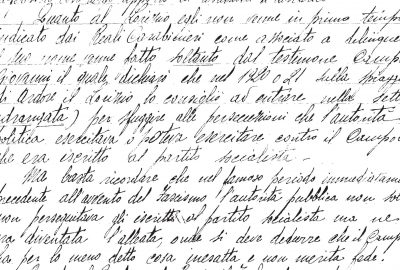 Quanto al Lorizio egli non venne in primo tempo
indicato dai Reali Carabinieri come associato a delinquere
il suo nome venne fatto soltanto dal testimone Campo
Giovanni il quale dichiarò che nel 1920 o 21 sulla piazza
di Ardore il Lorizio lo consigliò ad entrare nella setta
ndrangata) per sfuggire alle persecuzioni che l'autorità
politica esercitava o poteva esercitare contro il Campo
che era iscritto al partito socialista -
Ma basta ricordare che nel famoso periodo immediatamente
precedente all'avvento del fascismo l'autorità pubblica non solo
non perseguitava gli iscritti al partito socialista ma ne
era diventata l'alleata, onde si deve dedurre che il Campo
ha per lo meno detto cosa inesatta e non merita fede.